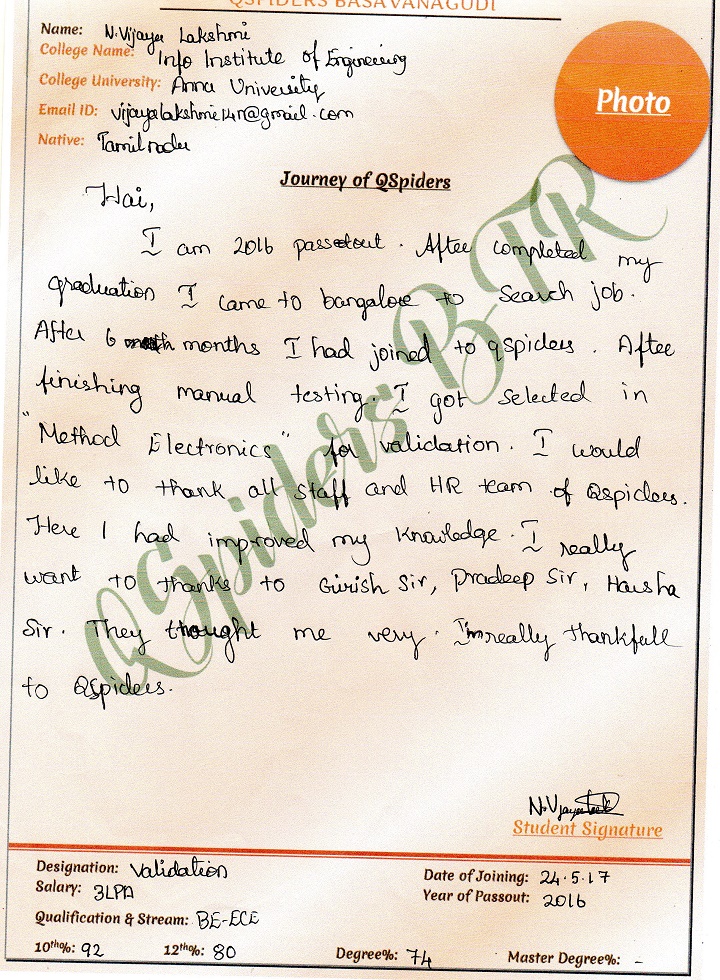 QSPIDERS BASAVANAGUDI
Name: N.Vijaya Lakshmi
College Name: Info Institute of Engineering
College University: Anna University
Email ID: vijayalakshmi14n@gmail.com
Native: Tamilnadu
Photo
Journey of QSpiders
Hai,
I am 2016 passedout. After completed my
graduation I came to bangalore to search job.
After 6 months I had joined to qspiders. After
finishing manual testing. I got selected in
"Method Electronics" for validation. I would
like to thank all staff and HR team of Qspiders.
Here I had improved my knowledge. I really
want to thanks to Girish Sir, Pradeep Sir, Harsha
Sir. They thought me very. I'm really thankfull
to QSpiders.
QSpiders BTR
N.Vijaya
Student Signature
Designation: Validation
Salary: 3LPA
Qualification & Stream: BE-ECE
Date of Joining: 24.5.17
Year of Passout: 2016
10th%: 92 12th%: 80 Degree%: 74 Master Degree%: -